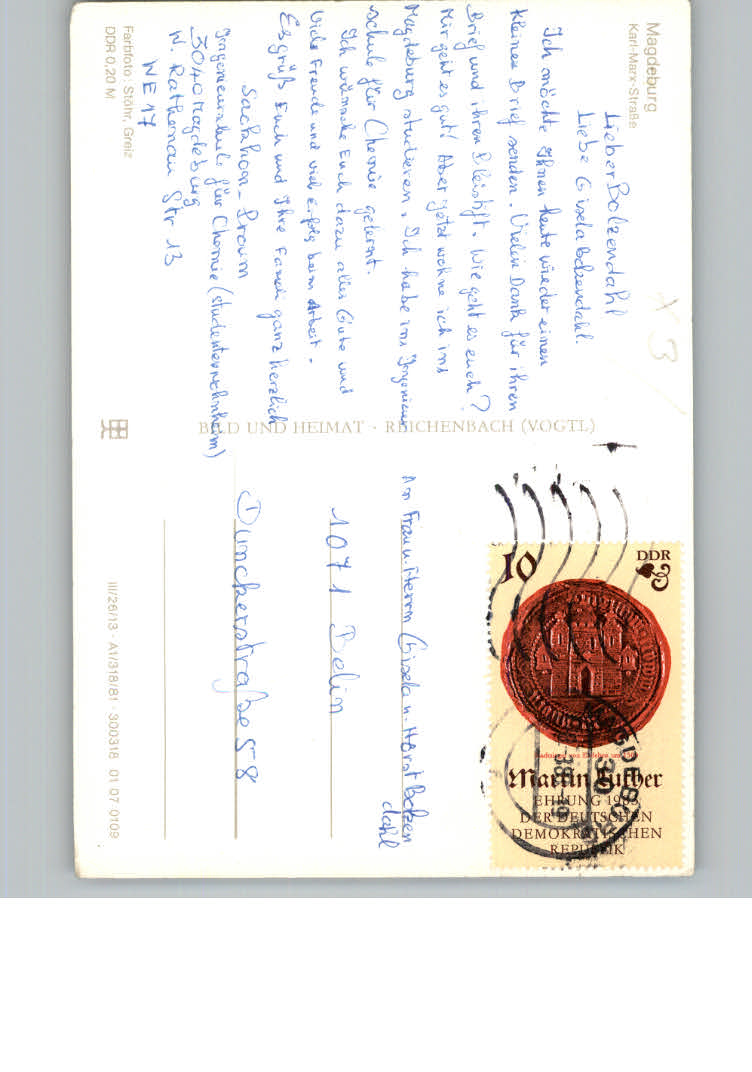 Magdeburg
Karl-Marx-Straße
Lieber Bolzendahl
Liebe Gisela Bolzendahl.
Ich möchte Ihnen heute wieder einen
kleinen Brief senden. Vielen Dank für ihren
Brief und ihren Bleistift. Wie geht es euch?
Mir geht es gut! Aber jetzt wohne ich ins
Magdeburg studieren. Ich habe ins Ingenieur
schule für Chemie gelernt.
Ich wünsche Euch dazu alles Gute und
viele Freude und viel erfolg beim Arbeit.
Es grüß Euch und Ihre Famili ganz herzlich
Ingenieurschule für Chemie (studentenwohnheim)
3040 Magdeburg
W. Rathenau Str 13
WE 17
Farbfoto: Stöhr, Greiz
DDR 0,20 M
BILD UND HEIMAT · REICHENBACH (VOGTL)
An Frau u. Herrn Gisela u. Horst Bolzen
dahl
1071 Belin
Dunckerstraße 58
III/26/13 · A1/318/81 · 300318 01 07 0109
10
DDR
Martin Luther
EHRUNG 1983
DER DEUTSCHEN
DEMOKRATISCHEN
REPUBLIK
MAGDEBURG
× 3